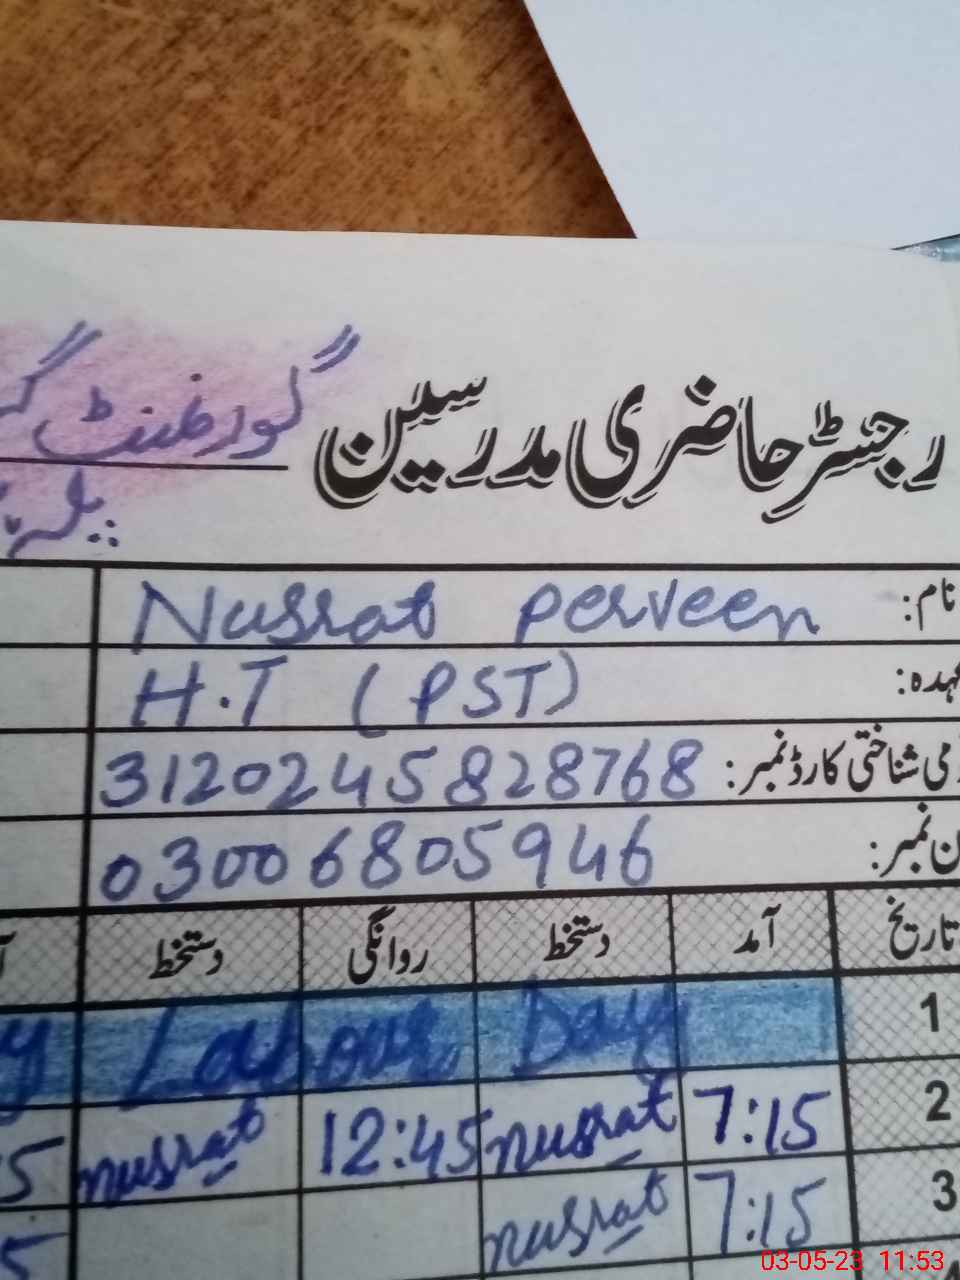 رجسٹر حاضری مدرسین گورنمنٹ
نام: Nusrat Perveen
عہدہ: H.T (PST)
شناختی کارڈ نمبر: 3120245828768
نمبر: 03006805946
تاریخ آمد دستخط روانگی دستخط
1 Labour Day
2 7:15 nusrat 12:45 nusrat
3 7:15 nusrat
03-05-23 11:53